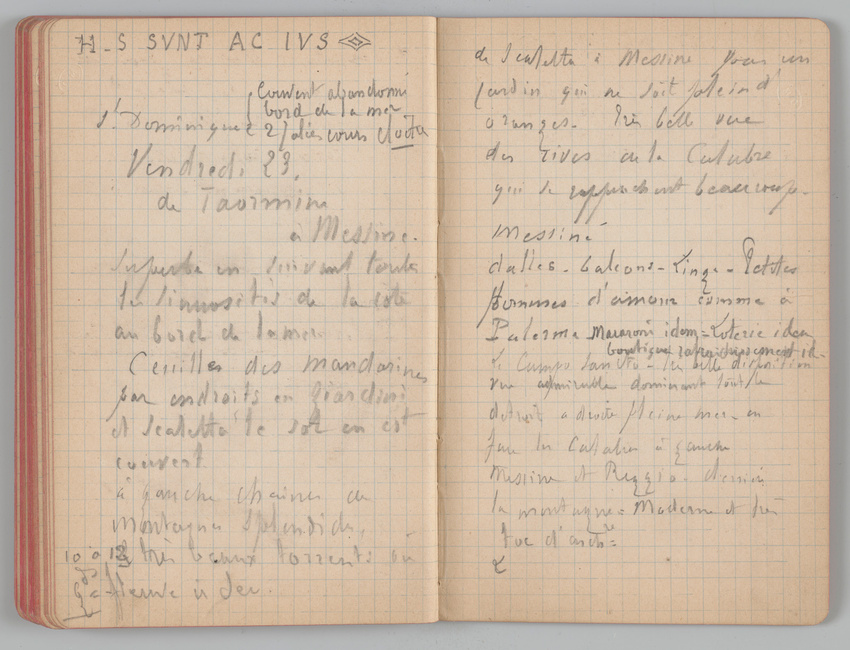 H. S SVNT AC IVS
Couvent abandonné
bord de la mer
St Dominique 2 jolies cours
Vendredi 23.
de Taormine
à Messine.
Superbe en suivant toutes
les sinuosités de la côte
au bord de la mer
Ceuilles des mandarines
par endroits en Giardini
et Scaletta le sol en est
couvert
à gauche chaines de
montagnes splendides,
10 à 12 très beaux torrents ou
fleuve à sec.
de Scaletta à Messine pas un
jardin qui ne soit plein d'
oranges. Très belle vue
des rives de la Calabre
qui se rapprochent beaucoup.
Messine
dalles - balcons - Linge - Petites
pommes d'amour comme à
Palerme Macaroni idem = Loterie idem
boutique rafraichissement id.
Le Campo Santo - très belle disposition
vue admirable dominant tout le
détroit à droite pleine mer - en
face la Calabre à gauche
Messine et Reggio. derrière
la montagne = Moderne et très